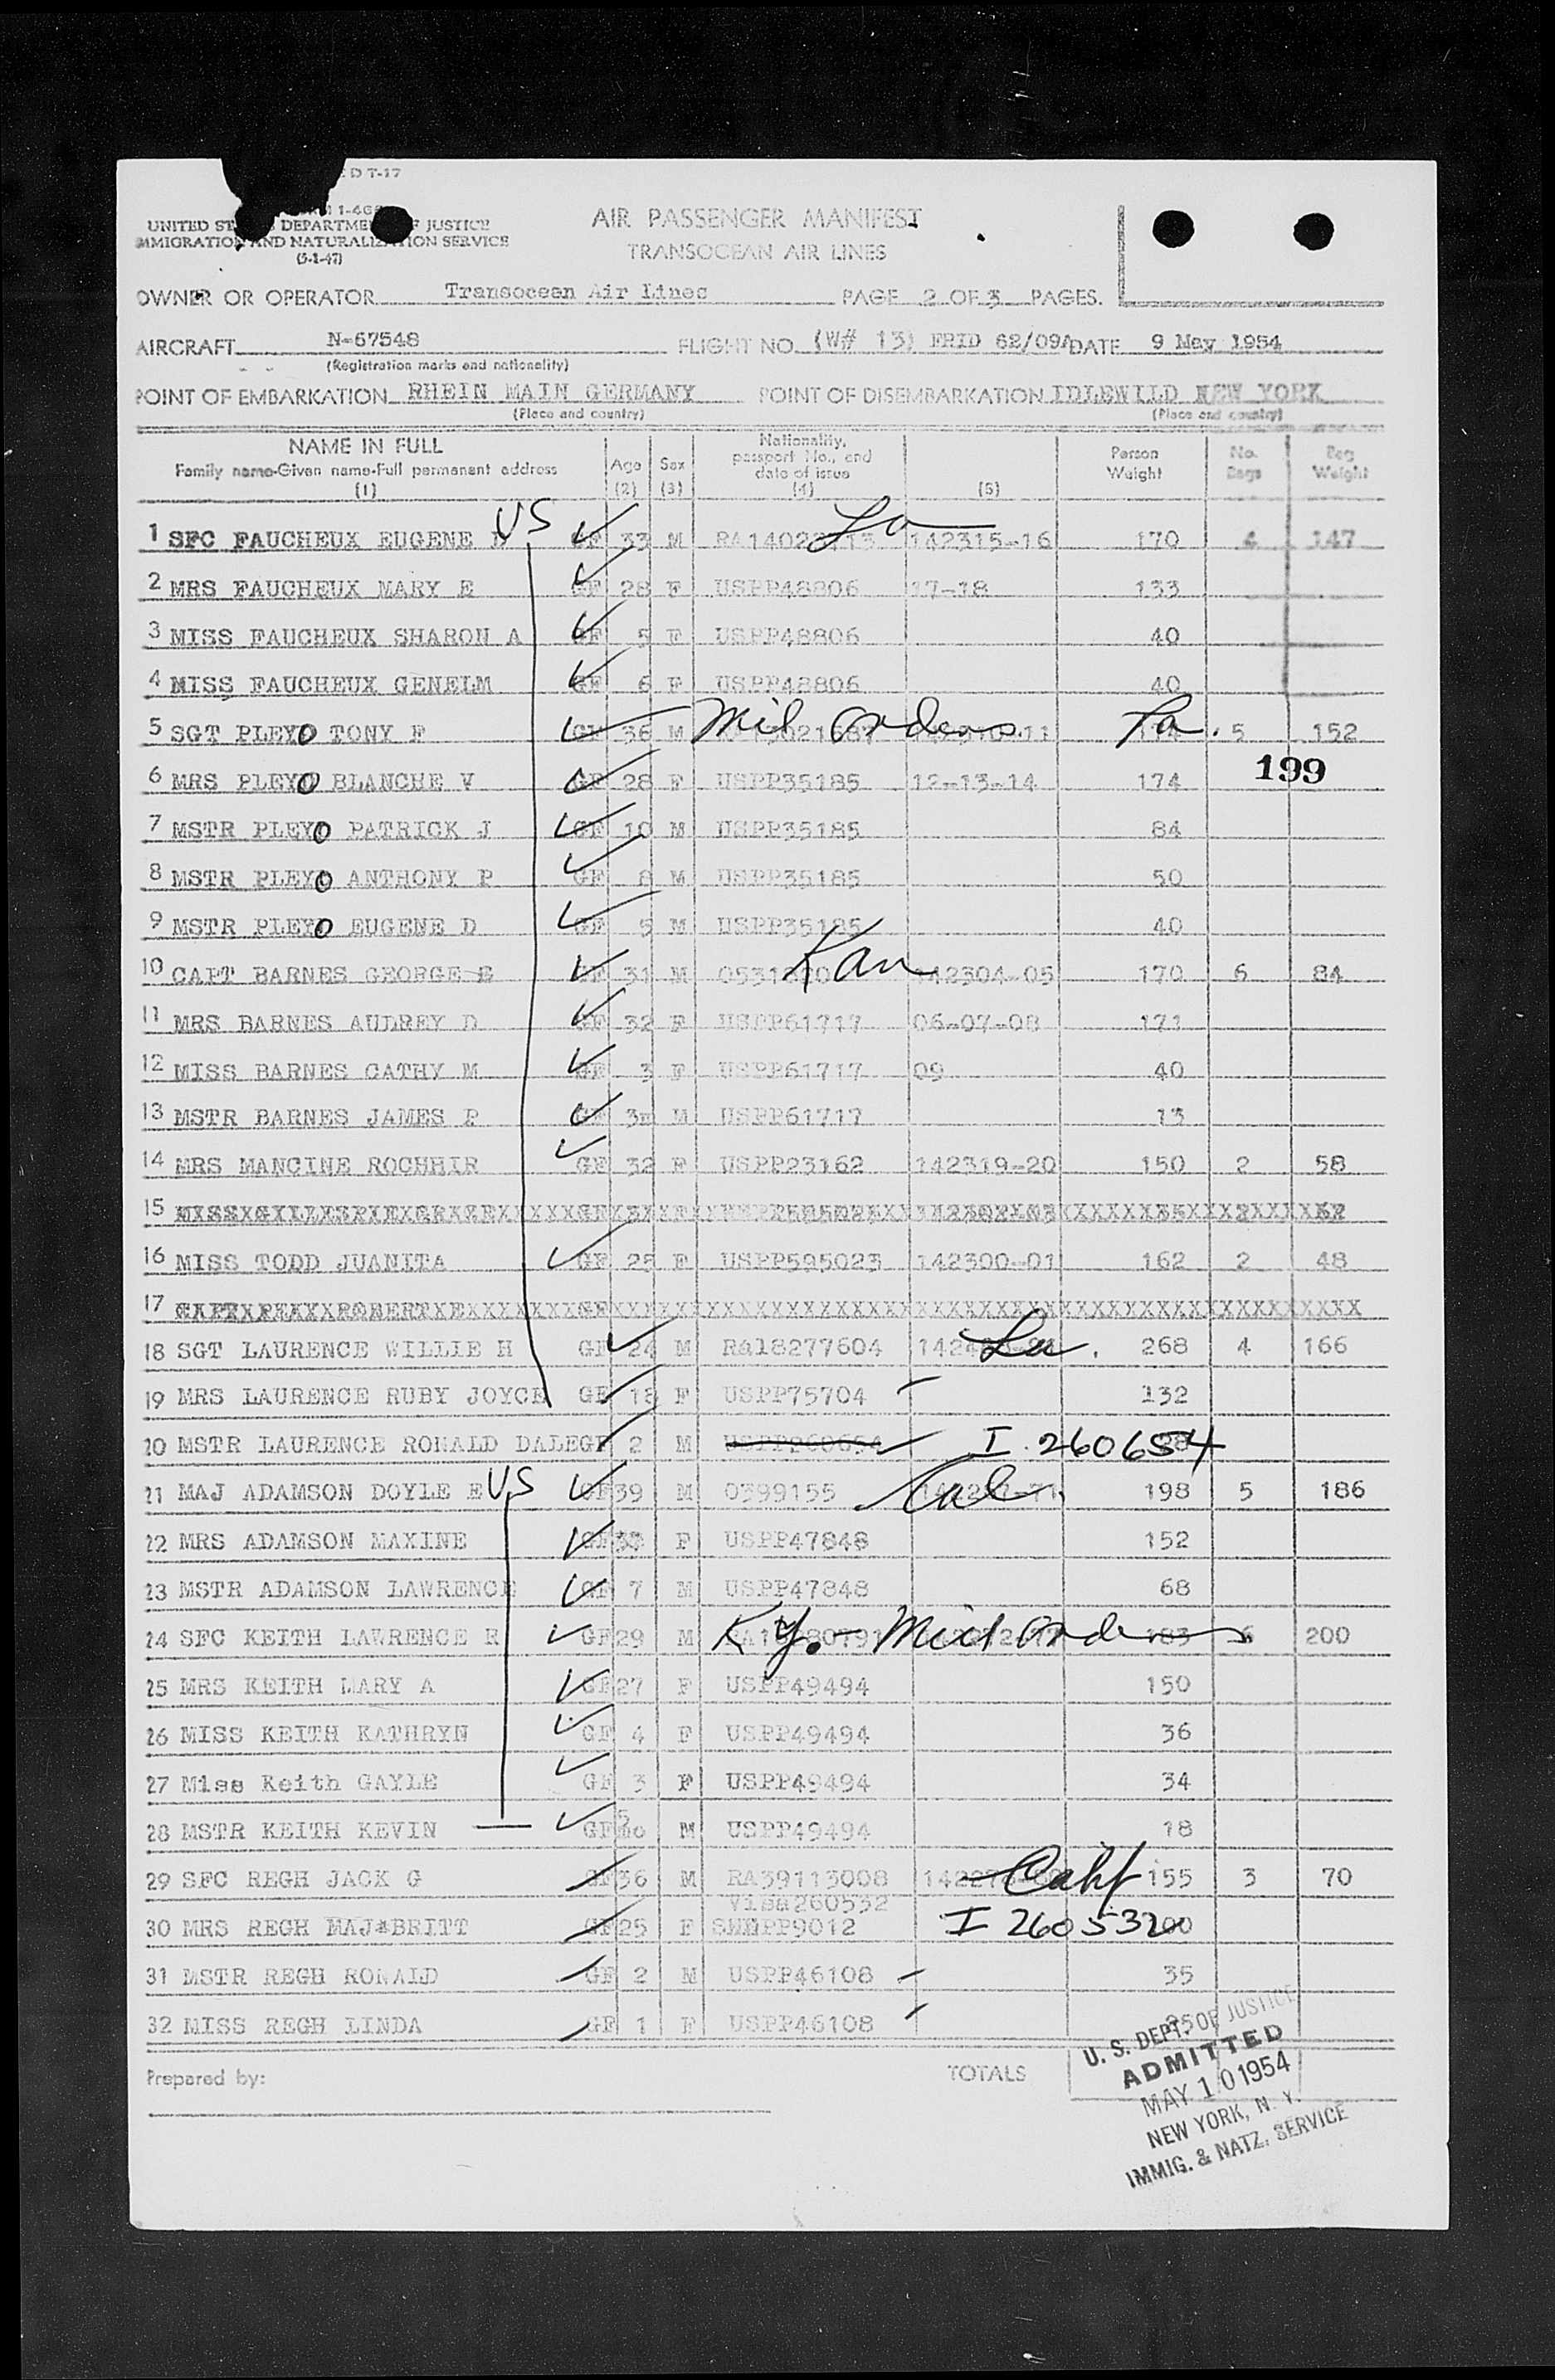 D T-17
1-466
UNITED ST DEPARTME F JUSTICE
IMMIGRATION AND NATURALIZATION SERVICE
(5-1-47)
AIR PASSENGER MANIFEST
TRANSOCEAN AIR LINES
OWNER OR OPERATOR Transocean Air Lines PAGE 2 OF 3 PAGES.
AIRCRAFT N-67548 FLIGHT NO. (W# 13) FRID 62/09A DATE 9 May 1954
(Registration marks and nationality)
POINT OF EMBARKATION RHEIN MAIN GERMANY POINT OF DISEMBARKATION IDLEWILD NEW YORK
(Place and country) (Place and country)
NAME IN FULL Age Sex Nationality, passport No., and date of issue Person Weight No. Bags Bag Weight
Family name-Given name-Full permanent address
(1) (2) (3) (4) (5)
US
1 SFC FAUCHEUX EUGENE GF 33 M La 142315-16 170 4 147
2 MRS FAUCHEUX MARY E GF 28 F USPP48806 17-18 133
3 MISS FAUCHEUX SHARON A GF 5 F USPP48806 40
4 MISS FAUCHEUX GENELM GF 6 F USPP48806 40
5 SGT PLEYO TONY F GF 36 M Mil orders Pa. 5 152
199
6 MRS PLEYO BLANCHE V GF 28 F USPP35185 12-13-14 174
7 MSTR PLEYO PATRICK J GF 10 M USPP35185 84
8 MSTR PLEYO ANTHONY P GF 8 M USPP35185 50
9 MSTR PLEYO EUGENE D GF 5 M USPP35185 40
10 CAPT BARNES GEORGE GF 31 M Kan 142304-05 170 6 84
11 MRS BARNES AUDREY D GF 32 F USPP61717 06-07-08 171
12 MISS BARNES CATHY M GF 3 F USPP61717 09 40
13 MSTR BARNES JAMES P GF 3m M USPP61717 13
14 MRS MANCINE ROCHHIR GF 32 F USPP23162 142319-20 150 2 58
15
16 MISS TODD JUANITA GF 25 F USPP595023 142300-01 162 2 48
17
18 SGT LAURENCE WILLIE H GF 24 M RA18277604 La. 268 4 166
19 MRS LAURENCE RUBY JOYCE GF 18 F USPP75704 132
20 MSTR LAURENCE RONALD DALE GF 2 M USPP260654 I 260654
21 MAJ ADAMSON DOYLE E US GF 39 M 0399155 Cal. 198 5 186
22 MRS ADAMSON MAXINE GF 33 F USPP47848 152
23 MSTR ADAMSON LAWRENCE GF 7 M USPP47848 68
24 SFC KEITH LAWRENCE R GF 29 M Ky. - Mil orders 183 6 200
25 MRS KEITH MARY A GF 27 F USPP49494 150
26 MISS KEITH KATHRYN GF 4 F USPP49494 36
27 Miss Keith GAYLE GF 3 F USPP49494 34
28 MSTR KEITH KEVIN GF 5 mo M USPP49494 18
29 SFC REGH JACK G GF 36 M RA39113008 Calif 155 3 70
Visa260532
30 MRS REGH MAJ*BRITT GF 25 F PP9012 I 260532
31 MSTR REGH RONALD GF 2 M USPP46108 35
32 MISS REGH LINDA GF 1 F USPP46108
Prepared by: TOTALS
U. S. DEPT. OF JUSTICE
ADMITTED
MAY 10 1954
NEW YORK, N. Y.
IMMIG. & NATZ. SERVICE